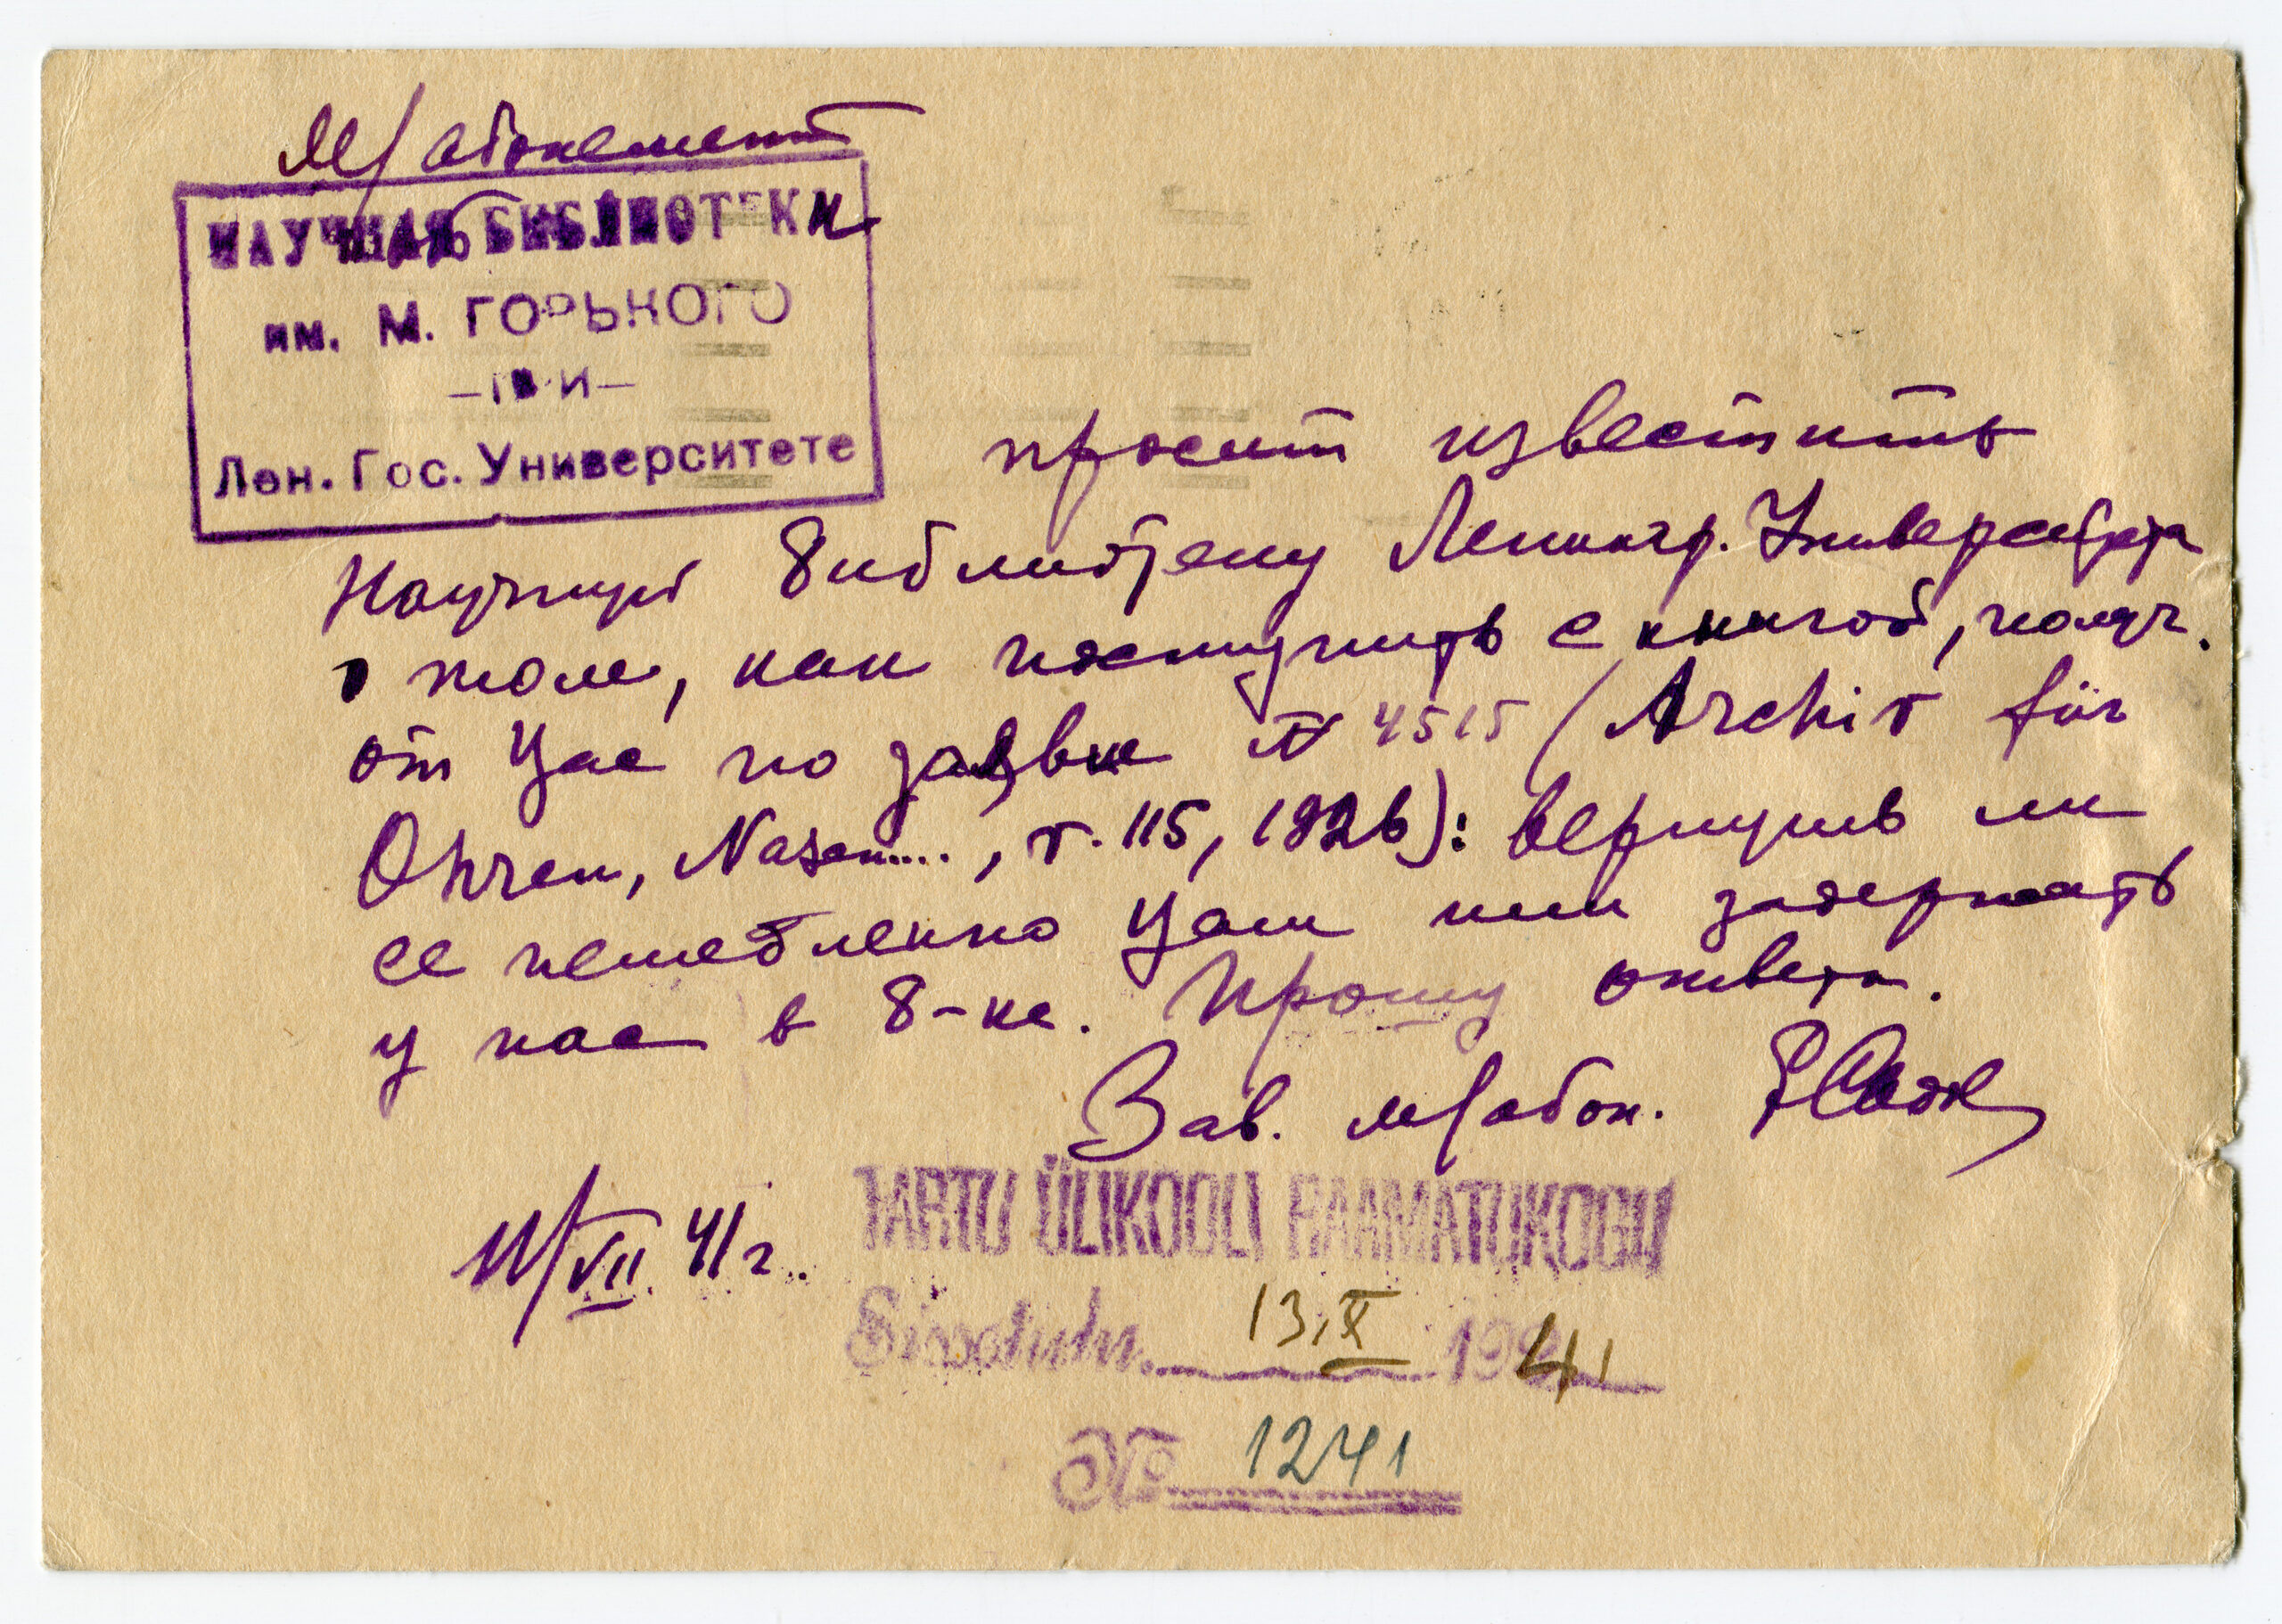 М/абонемент
НАУЧНАЯ БИБЛИОТЕКИ
им. М. ГОРЬКОГО
Лен. Гос. Университете
просит известить
Научную Библиотеку Ленингр. Университета
о том, как поступить с книгой, получ.
от Вас по заявке № 4515 (Archiv für
Ohren, Nasen...., т. 115, 1926): вернуть ли
ее немедленно Вам или задержать
у нас в Б-ке. Прошу ответа.
Зав. м/абон.
11/VII. 41 г.
TARTU ÜLIKOOLI RAAMATUKOGU
Sissetuln. 13.X 1941
№ 1241